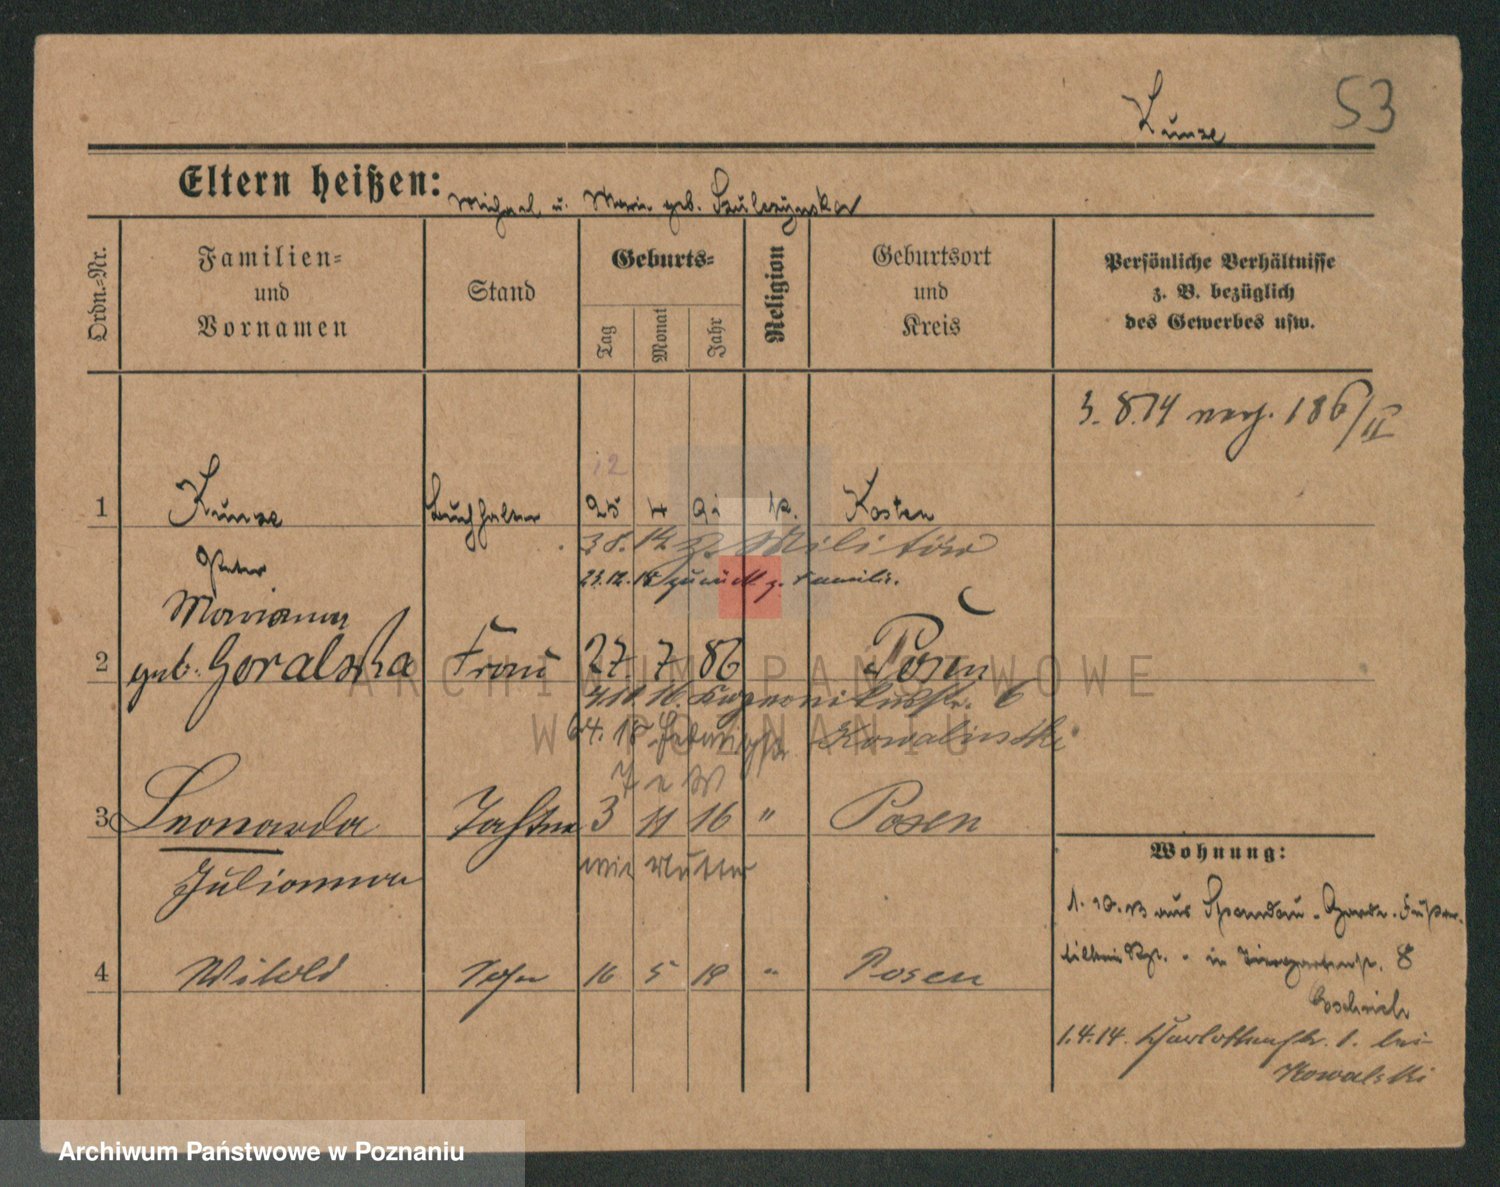 53
Kunze
Eltern heißen: Michael u. Marie geb. Szulczynska
Ordn.-Nr.
Familien-
und
Vornamen
Stand
Geburts-
Tag
Monat
Jahr
Religion
Geburtsort
und
Kreis
Persönliche Verhältnisse
z. B. bezüglich
des Gewerbes usw.
3. 8. 14 186/II
1 Kunze Buchhalter 25 4 k. Kosten
12
3 8. 14 z. Militär
Peter
23.12.18 zurück z. Familie.
Marianna
2 geb. Goralska Frau 27. 7 86 Posen
6
18 Kowalinski
3 Leonarda Tochter 3 11 16 " Posen
wie Mutter
Julianna
4 Witold Sohn 16 5 18 " Posen
Wohnung:
1. 10. 13 aus Spandau - Garde-Fußar-
tillerie Rgt. - in Tiergartenstr. 8
1.4.14. Charlottenstr. 1. bei
Kowalski
ARCHIWUM PAŃSTWOWE
W POZNANIU
Archiwum Państwowe w Poznaniu